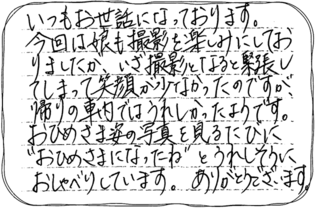 いつもお世話になっております。
今回は娘も撮影を楽しみにしてお
りましたが、いざ撮影となると緊張し
てしまって笑顔が少なかったのですが
帰りの車内ではうれしかったようです。
おひめさま姿の写真を見るたびに
"おひめさまになったね"とうれしそうに
おしゃべりしています。ありがとうございます。